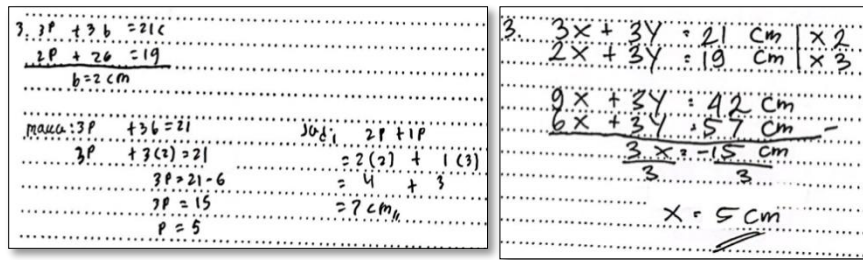 3. 3P + 3b = 21c
2P + 2b = 19
b = 2 cm
maka : 3P + 3b = 21
3P + 3(2) = 21
3P = 21 - 6
3P = 15
P = 5
Jadi, 2P + 1P
= 2(2) + 1(3)
= 4 + 3
= 7 cm
3. 3x + 3y = 21 cm | x 2
2x + 3y = 19 cm | x 3
9x + 3y = 42 cm
6x + 3y = 57 cm -
3x = -15 cm
3 3
x = 5 cm